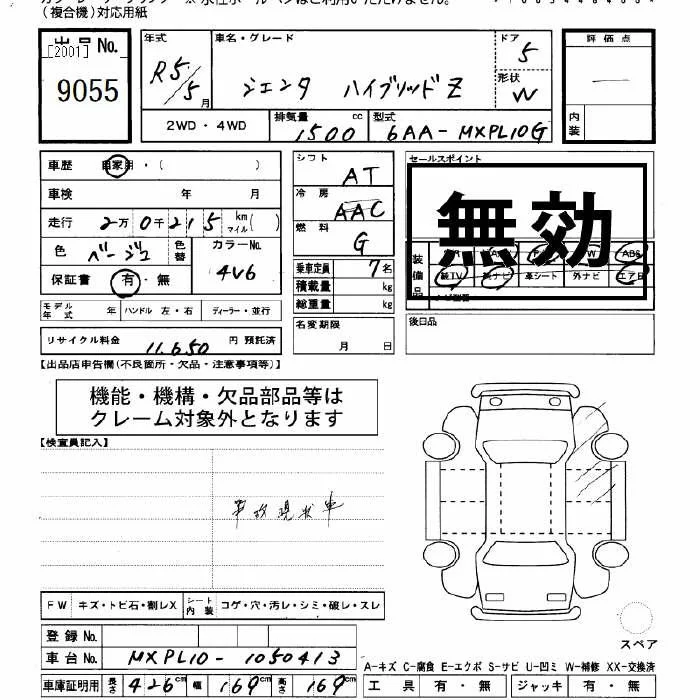 (複合機)対応用紙
出品No. [2001] 9055
年式 R5/5月
車名・グレード シエンタ ハイブリッドZ
ドア 5
形状 W
評価点 —
内装
2WD・4WD
排気量 1500 cc
型式 6AA-MXPL10G
車歴 自家用・( )
車検 年 月
走行 2万0千215 km マイル( )
色 ベージュ 色替 カラーNo. 4V6
保証書 有・無
シフト AT
冷房 AAC
燃料 G
乗車定員 7名
積載量 kg
総重量 kg
セールスポイント
無効
装備品
ABS
純TV 純ナビ 革シート 外ナビ エアB
モデル年式 年 ハンドル 左・右 ディーラー・並行
リサイクル料金 11,650 円 預託済
名変期限 月 日
後日品
【出品店申告欄(不良箇所・欠品・注意事項等)】
機能・機構・欠品部品等は
クレーム対象外となります
【検査員記入】
事故現状車
FW キズ・トビ石・割レX シート内装 コゲ・穴・汚レ・シミ・破レ・スレ
登録No.
車台No. MXPL10-1050413
車庫証明用 長さ 426cm 幅 169cm 高さ 169cm
スペア
A-キズ C-腐食 E-エクボ S-サビ U-凹ミ W-補修 XX-交換済
工具 有・無 ジャッキ 有・無